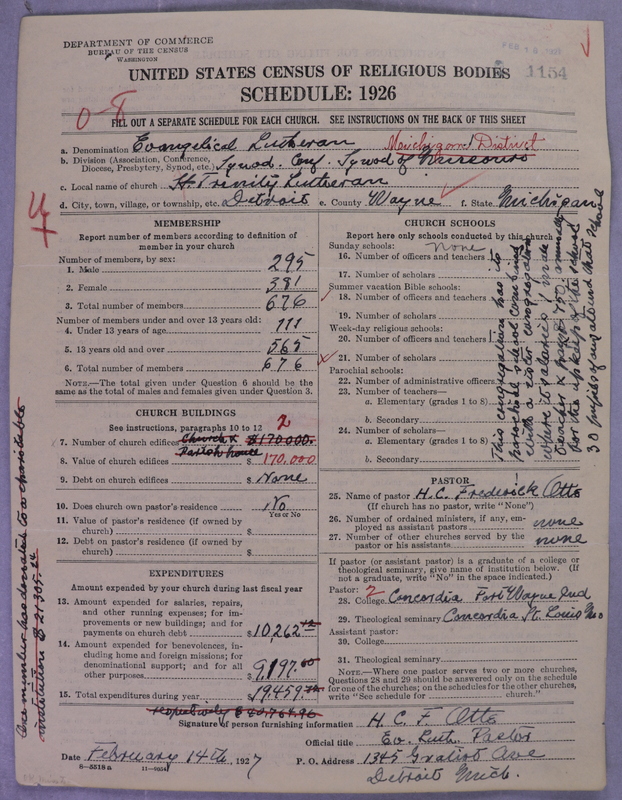 DEPARTMENT OF COMMERCE
BUREAU OF THE CENSUS
WASHINGTON
1154
UNITED STATES CENSUS OF RELIGIOUS BODIES
SCHEDULE: 1926
FILL OUT A SEPARATE SCHEDULE FOR EACH CHURCH. SEE INSTRUCTIONS ON THE BACK OF THIS SHEET
a. Denomination Evangelical Lutheran Michigan District
b. Division (Association, Conference, Diocese, Presbytery, Synod, etc.) Synod. Conf. Synod of Missouri
c. Local name of church H. Trinity Lutheran
d. City, town, village, or township, etc. Detroit e. County Wayne f. State Michigan
MEMBERSHIP
Report number of members according to definition of
member in your church
Number of members, by sex:
1. Male 295
2. Female 381
3. Total number of members 676
Number of members under and over 13 years old:
4. Under 13 years of age 111
5. 13 years old and over 565
6. Total number of members 676
NOTE.—The total given under Question 6 should be
same as the total of males and females given under Question 3.
CHURCH BUILDINGS
See instructions, paragraphs 10 to 12
7. Number of church edifices Church & Parish house $170000. 2
8. Value of church edifices $ 170,000
9. Debt on church edifices $ None
10. Does church own pastor's residence? No
Yes or No
11. Value of pastor's residence (if owned by
church) $
12. Debt on pastor's residence (if owned by
church) $
EXPENDITURES
Amount expended by your church during last fiscal year
13. Amount expended for salaries, repairs,
and other running expenses; for im-
provements or new buildings; and for
payments on church debt $ 10,262
14. Amount expended for benevolences, in-
cluding home and foreign missions; for
denominational support; and for all
other purposes $ 9,197
15. Total expenditures during year $ 19,459
One member has donated to a charitable
institution
CHURCH SCHOOLS
Report here only schools conducted by this church
Sunday schools: None
16. Number of officers and teachers
17. Number of scholars
Summer vacation Bible schools:
18. Number of officers and teachers
19. Number of scholars
Week-day religious schools:
20. Number of officers and teachers
21. Number of scholars
Parochial schools:
22. Number of administrative officers
23. Number of teachers—
a. Elementary (grades 1 to 8)
b. Secondary
24. Number of scholars—
a. Elementary (grades 1 to 8)
b. Secondary
This congregation has its
parochial school combined
with a sister congregation
where it salaries 1 male
teacher & pays $750 annually
for the upkeep of the school
30 pupils of ours attend that school
PASTOR
25. Name of pastor H. C. Frederick Otte
(If church has no pastor, write "None")
26. Number of ordained ministers, if any, em-
ployed as assistant pastors none
27. Number of other churches served by the
pastor or his assistants none
If pastor (or assistant pastor) is a graduate of a college or
theological seminary, give name of institution below. (If
not a graduate, write "No" in the space indicated.)
Pastor: 2
28. College Concordia Fort Wayne Ind
29. Theological seminary Concordia St. Louis Mo
Assistant pastor:
30. College
31. Theological seminary
NOTE.—Where one pastor serves two or more churches,
Questions 28 and 29 should be answered only on the schedule
for one of the churches; on the schedules for the other churches,
write "See schedule for church."
Signature of person furnishing information H. C. F. Otte
Official title Ev. Luth. Pastor
Date February 14th, 1927 P. O. Address 1345 Gratiot Ave
8—5518a 11—9054 Detroit Mich.